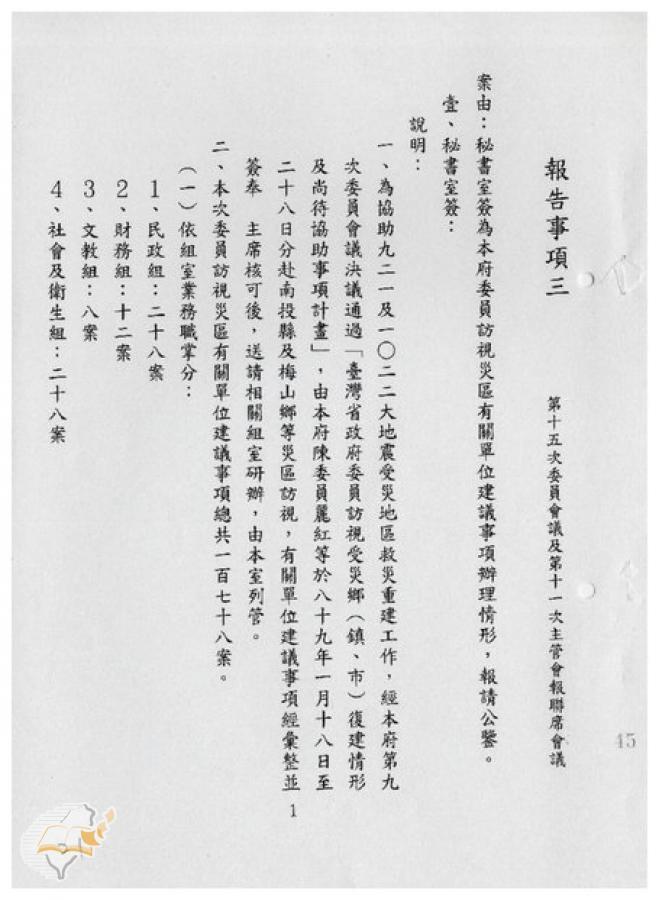 報告事項三
第十五次委員會議及第十一次主管會報聯席會議
案由：秘書室簽為本府委員訪視災區有關單位建議事項辦理情形，報請公鑒。
壹、秘書室簽：
說明：
一、為協助九二一及一〇二二大地震受災地區救災重建工作，經本府第九
次委員會議決議通過「臺灣省政府委員訪視受災鄉（鎮、市）復建情形
及尚待協助事項計畫」，由本府陳委員麗紅等於八十九年一月十八日至
二十八日分赴南投縣及梅山鄉等災區訪視，有關單位建議事項經彙整並
簽奉　主席核可後，送請相關組室研辦，由本室列管。
二、本次委員訪視災區有關單位建議事項總共一百七十八案。
（一）依組室業務職掌分：
1、民政組：二十八案
2、財務組：十二案
3、文教組：八案
4、社會及衛生組：二十八案
1
45